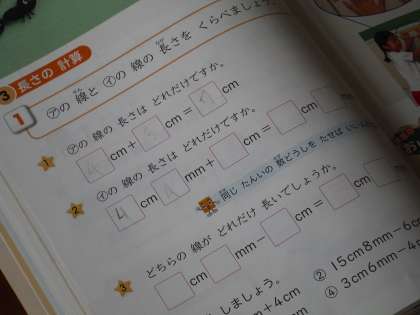 3 長さの 計算
1 ㋐の 線と ㋑の 線の 長さを くらべましょう
1 ㋐の 線の 長さは どれだけですか。
cm + cm = cm
2 ㋑の 線の 長さは どれだけですか。
4 cm mm + cm =
同じ たんいの 数どうしを たせば いい
3 どちらの 線が どれだけ 長いでしょうか。
cm mm − cm =
しましょう。
② 15cm8mm−6c
m+4cm
④ 3cm6mm−4